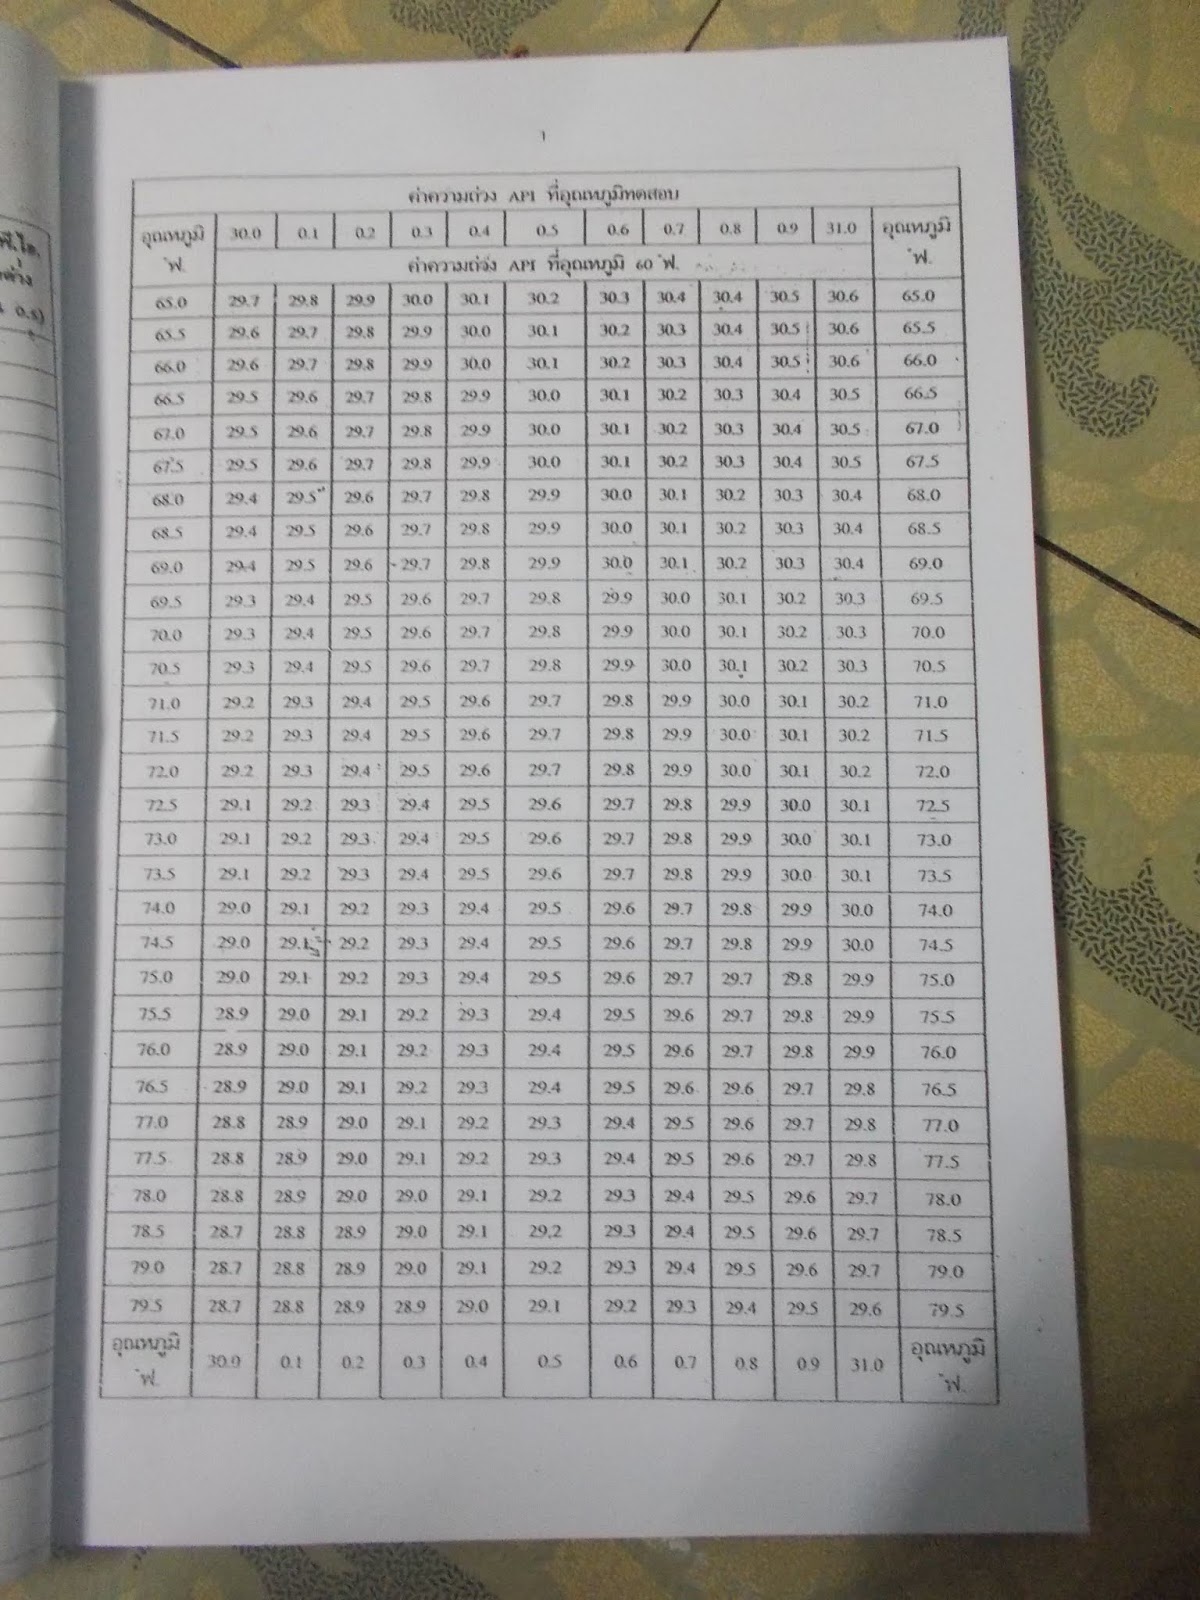 พี.ไอ.
๑
ค่าความถ่วง API ที่อุณหภูมิทดสอบ
อุณหภูมิ ํฟ. 30.0 0.1 0.2 0.3 0.4 0.5 0.6 0.7 0.8 0.9 31.0 อุณหภูมิ ํฟ.
ค่าความถ่วง API ที่อุณหภูมิ 60 ํฟ.
65.0 29.7 29.8 29.9 30.0 30.1 30.2 30.3 30.4 30.4 30.5 30.6 65.0
65.5 29.6 29.7 29.8 29.9 30.0 30.1 30.2 30.3 30.4 30.5 30.6 65.5
66.0 29.6 29.7 29.8 29.9 30.0 30.1 30.2 30.3 30.4 30.5 30.6 66.0
66.5 29.5 29.6 29.7 29.8 29.9 30.0 30.1 30.2 30.3 30.4 30.5 66.5
67.0 29.5 29.6 29.7 29.8 29.9 30.0 30.1 30.2 30.3 30.4 30.5 67.0
67.5 29.5 29.6 29.7 29.8 29.9 30.0 30.1 30.2 30.3 30.4 30.5 67.5
68.0 29.4 29.5 29.6 29.7 29.8 29.9 30.0 30.1 30.2 30.3 30.4 68.0
68.5 29.4 29.5 29.6 29.7 29.8 29.9 30.0 30.1 30.2 30.3 30.4 68.5
69.0 29.4 29.5 29.6 29.7 29.8 29.9 30.0 30.1 30.2 30.3 30.4 69.0
69.5 29.3 29.4 29.5 29.6 29.7 29.8 29.9 30.0 30.1 30.2 30.3 69.5
70.0 29.3 29.4 29.5 29.6 29.7 29.8 29.9 30.0 30.1 30.2 30.3 70.0
70.5 29.3 29.4 29.5 29.6 29.7 29.8 29.9 30.0 30.1 30.2 30.3 70.5
71.0 29.2 29.3 29.4 29.5 29.6 29.7 29.8 29.9 30.0 30.1 30.2 71.0
71.5 29.2 29.3 29.4 29.5 29.6 29.7 29.8 29.9 30.0 30.1 30.2 71.5
72.0 29.2 29.3 29.4 29.5 29.6 29.7 29.8 29.9 30.0 30.1 30.2 72.0
72.5 29.1 29.2 29.3 29.4 29.5 29.6 29.7 29.8 29.9 30.0 30.1 72.5
73.0 29.1 29.2 29.3 29.4 29.5 29.6 29.7 29.8 29.9 30.0 30.1 73.0
73.5 29.1 29.2 29.3 29.4 29.5 29.6 29.7 29.8 29.9 30.0 30.1 73.5
74.0 29.0 29.1 29.2 29.3 29.4 29.5 29.6 29.7 29.8 29.9 30.0 74.0
74.5 29.0 29.1 29.2 29.3 29.4 29.5 29.6 29.7 29.8 29.9 30.0 74.5
75.0 29.0 29.1 29.2 29.3 29.4 29.5 29.6 29.7 29.7 29.8 29.9 75.0
75.5 28.9 29.0 29.1 29.2 29.3 29.4 29.5 29.6 29.7 29.8 29.9 75.5
76.0 28.9 29.0 29.1 29.2 29.3 29.4 29.5 29.6 29.7 29.8 29.9 76.0
76.5 28.9 29.0 29.1 29.2 29.3 29.4 29.5 29.6 29.6 29.7 29.8 76.5
77.0 28.8 28.9 29.0 29.1 29.2 29.3 29.4 29.5 29.6 29.7 29.8 77.0
77.5 28.8 28.9 29.0 29.1 29.2 29.3 29.4 29.5 29.6 29.7 29.8 77.5
78.0 28.8 28.9 29.0 29.0 29.1 29.2 29.3 29.4 29.5 29.6 29.7 78.0
78.5 28.7 28.8 28.9 29.0 29.1 29.2 29.3 29.4 29.5 29.6 29.7 78.5
79.0 28.7 28.8 28.9 29.0 29.1 29.2 29.3 29.4 29.5 29.6 29.7 79.0
79.5 28.7 28.8 28.9 28.9 29.0 29.1 29.2 29.3 29.4 29.5 29.6 79.5
อุณหภูมิ ํฟ. 30.0 0.1 0.2 0.3 0.4 0.5 0.6 0.7 0.8 0.9 31.0 อุณหภูมิ ํฟ.